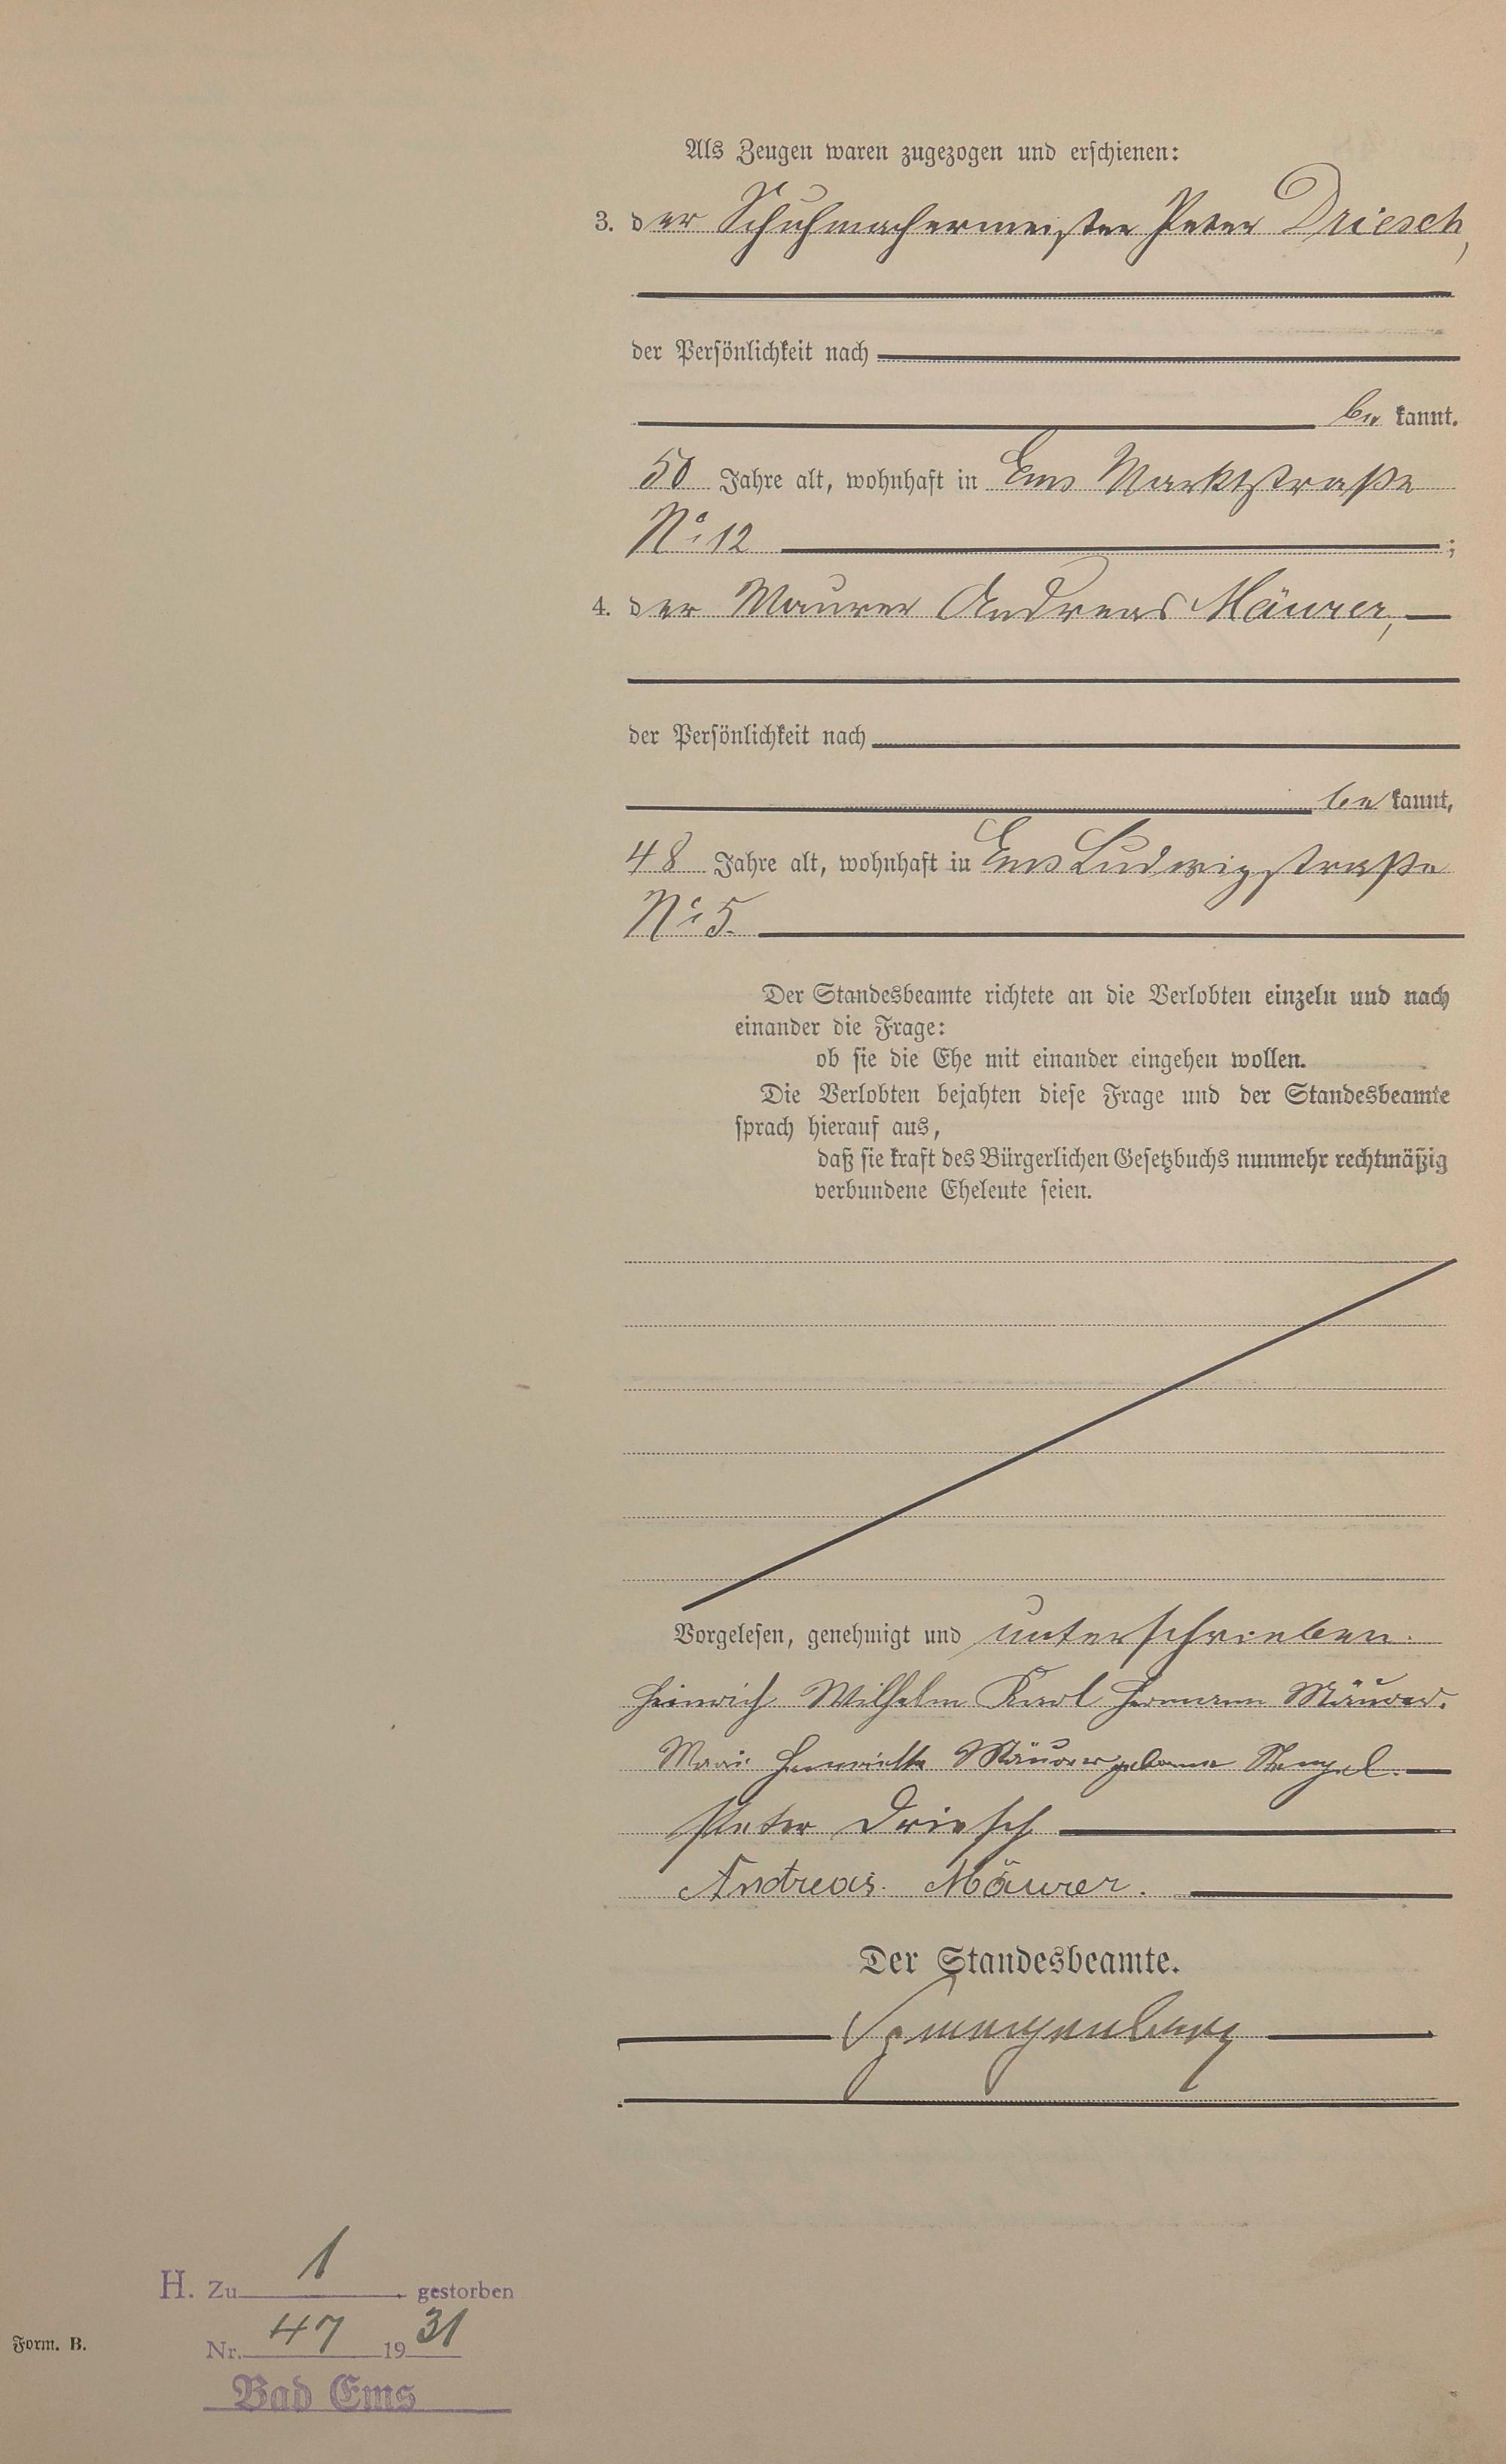 Als Zeugen waren zugezogen und erschienen:
3. der Schuhmachermeister Peter Driesch,
der Persönlichkeit nach
be kannt.
50 Jahre alt, wohnhaft in Ems Marktstraße
No: 12 ;
4. der Maurer Andreas Mäurer,
der Persönlichkeit nach
be kannt,
48 Jahre alt, wohnhaft in Ems Ludwigstraße
No: 5.
Der Standesbeamte richtete an die Verlobten einzeln und nach
einander die Frage:
ob sie die Ehe mit einander eingehen wollen.
Die Verlobten bejahten diese Frage und der Standesbeamte
sprach hierauf aus,
daß sie kraft des Bürgerlichen Gesetzbuchs nunmehr rechtmäßig
verbundene Eheleute seien.
Vorgelesen, genehmigt und unterschrieben.
Heinrich Wilhelm Karl Hermann Mäurer.
Marie Henriette Mäurer geborene Stengel.
Peter Driesch
Andreas Mäurer.
Der Standesbeamte.
H. Zu 1 gestorben
Nr. 47 1931
Form. B.
Bad Ems